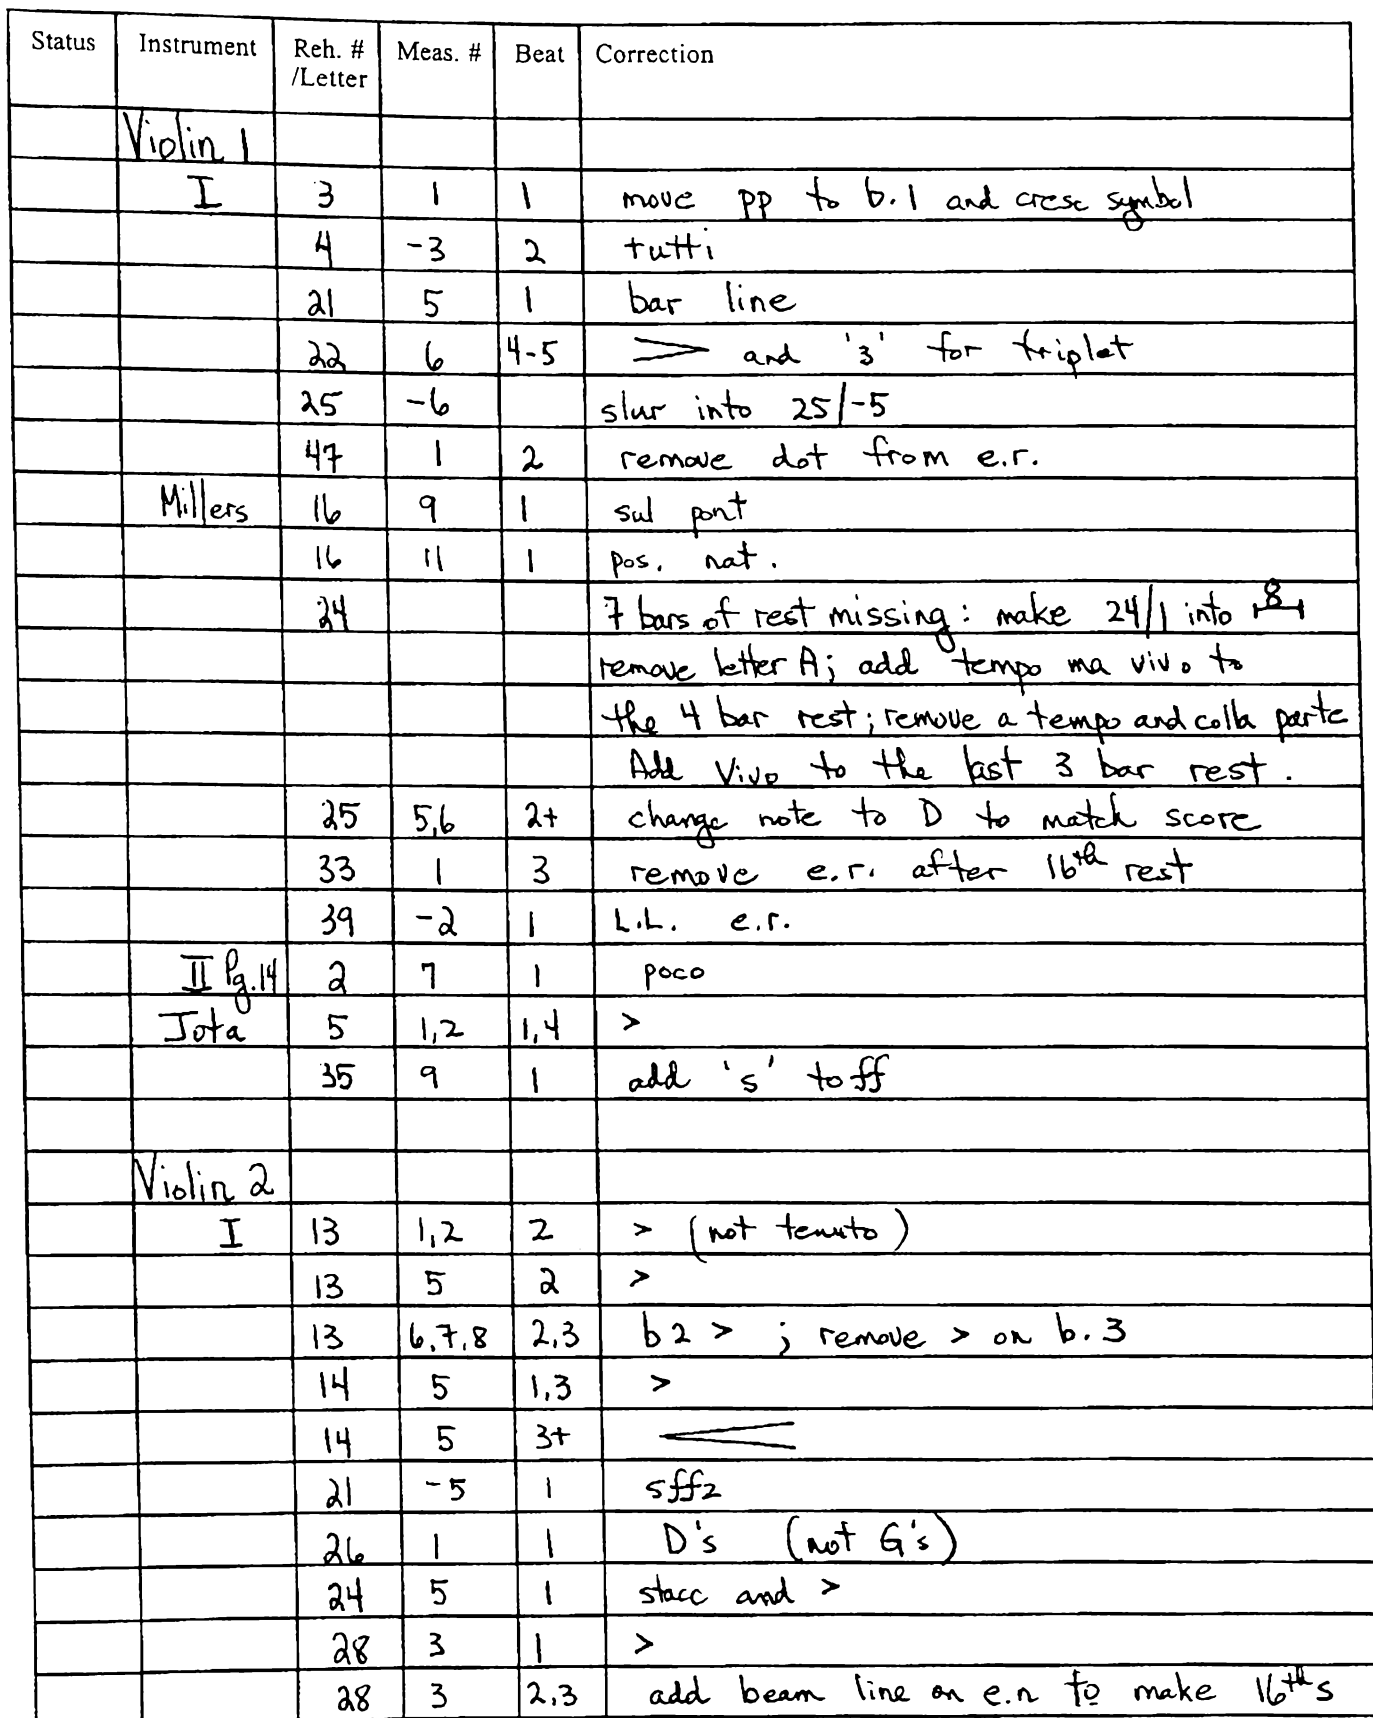 Status Instrument Reh. # /Letter Meas. # Beat Correction
Violin 1
I 3 1 1 move pp to b.1 and cresc symbol
4 -3 2 tutti
21 5 1 bar line
22 6 4-5 > and '3' for triplet
25 -6 slur into 25/-5
47 1 2 remove dot from e.r.
Millers 16 9 1 sul pont
16 11 1 pos. nat.
24 7 bars of rest missing: make 24/1 into 8
remove letter A; add tempo ma vivo to
the 4 bar rest; remove a tempo and colla parte
Add Vivo to the last 3 bar rest.
25 5,6 2+ change note to D to match score
33 1 3 remove e.r. after 16th rest
39 -2 1 L.L. e.r.
II Pg.14 2 7 1 poco
Jota 5 1,2 1,4 >
35 9 1 add 's' to ff
Violin 2
I 13 1,2 2 > (not tenuto)
13 5 2 >
13 6,7,8 2,3 b2 > ; remove > on b.3
14 5 1,3 >
14 5 3+ <
21 -5 1 sffz
26 1 1 D's (not G's)
24 5 1 stacc and >
28 3 1 >
28 3 2,3 add beam line on e.n to make 16ths